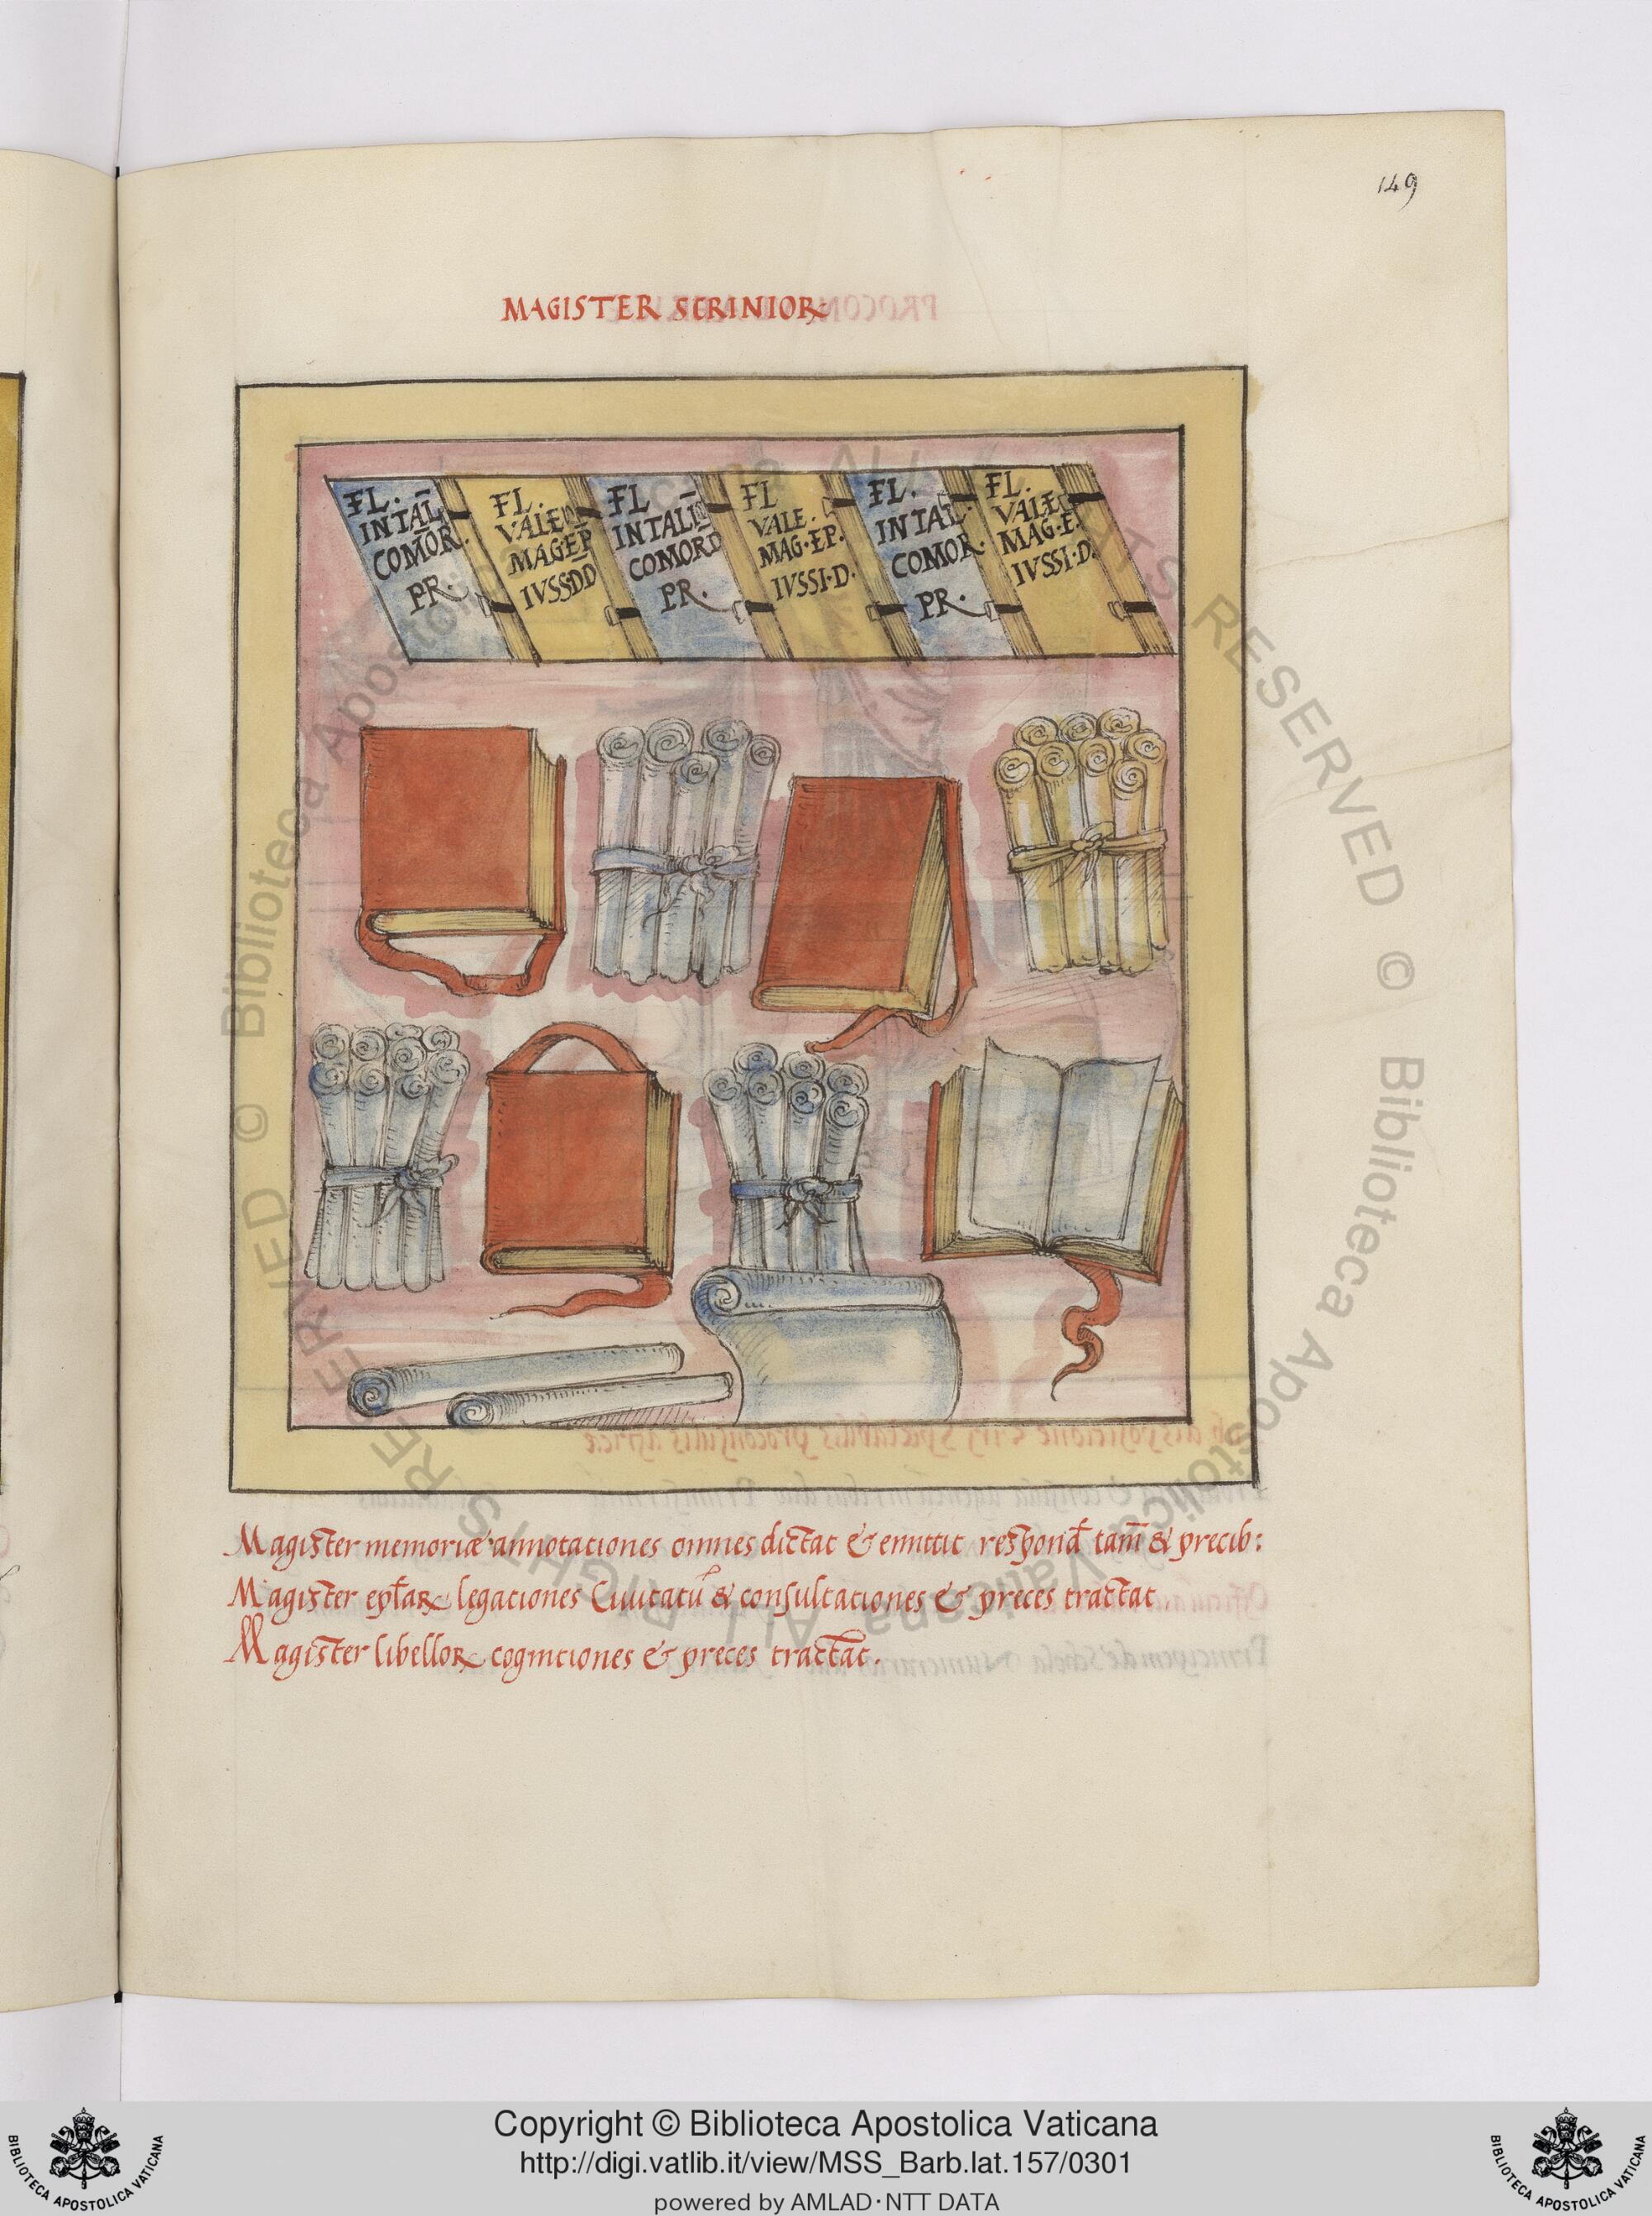 149
MAGISTER SCRINIOR
FL.
INTAL̅
COMOR.
PR.
FL.
VALEN̅
MAG·EP̅
IVSSDD
FL
INTALI
COMORD
PR.
FL
VALE.
MAG·EP.
IVSSI·D.
FL.
INTAL.
COMOR.
PR.
FL.
VALE
MAG·E.
IVSSI·D.
Magister memoriæ annotationes omnes dictat & emittit respond̄ tam̄ & precib:
Magister ep̄lar legationes Ciuitatū & consultationes & preces tractat
Magister libellor cognitiones & preces tractat.
Copyright © Biblioteca Apostolica Vaticana
http://digi.vatlib.it/view/MSS_Barb.lat.157/0301
powered by AMLAD·NTT DATA
BIBLIOTECA APOSTOLICA VATICANA
BIBLIOTECA APOSTOLICA VATICANA
© Biblioteca Apostolica Vaticana ALL RIGHTS RESERVED © Biblioteca Apostolica Vaticana ALL RIGHTS RESERVED